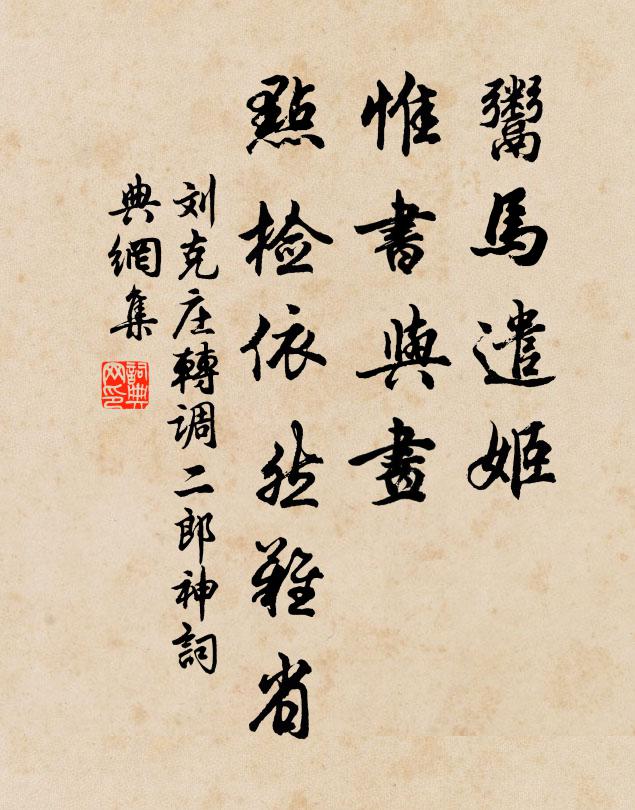 鬻馬遣姬
惟書與畫
點檢依然難省
刘克庄轉调二郎神詞
典網集
詞典网印